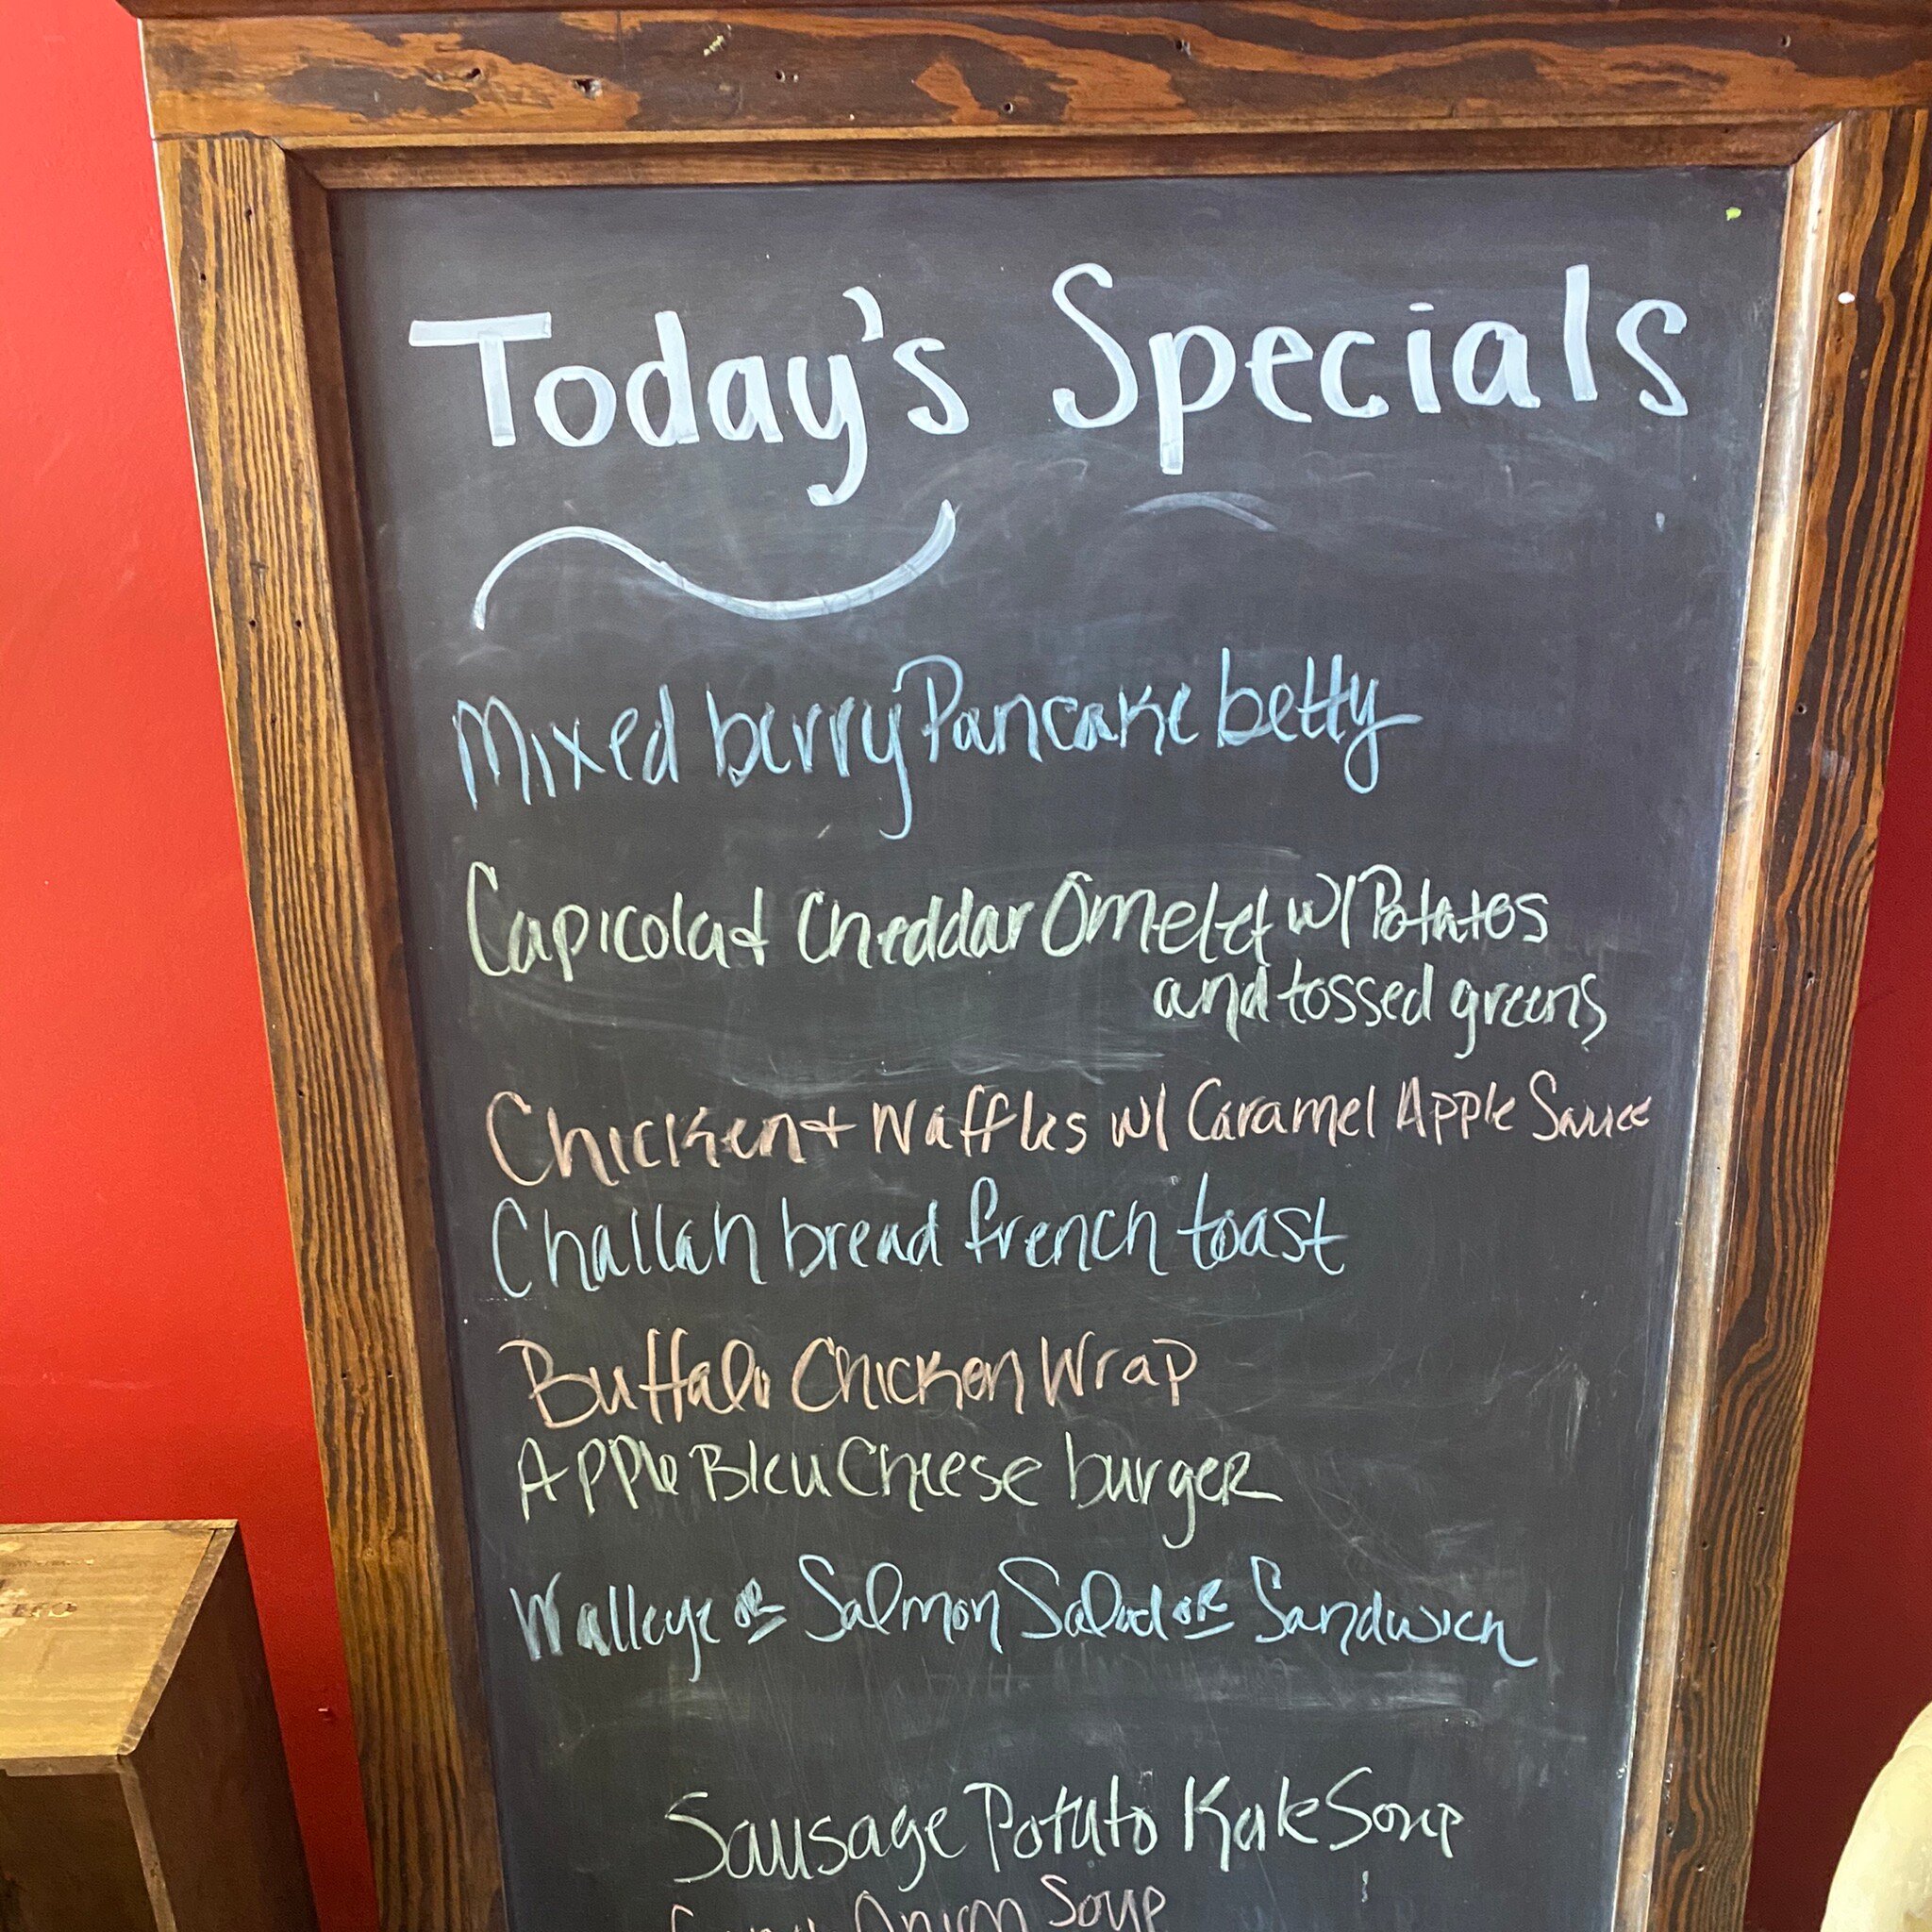 Today's Specials
Mixed berry Pancake betty
Capicola + Cheddar Omelet w/ Potatos
and tossed greens
Chicken + Waffles w/ Caramel Apple Sauce
Challah bread french toast
Buffalo Chicken Wrap
Apple Bleu Cheese burger
Walleye or Salmon Salad or Sandwich
Sausage Potato Kale Soup
Onion Soup